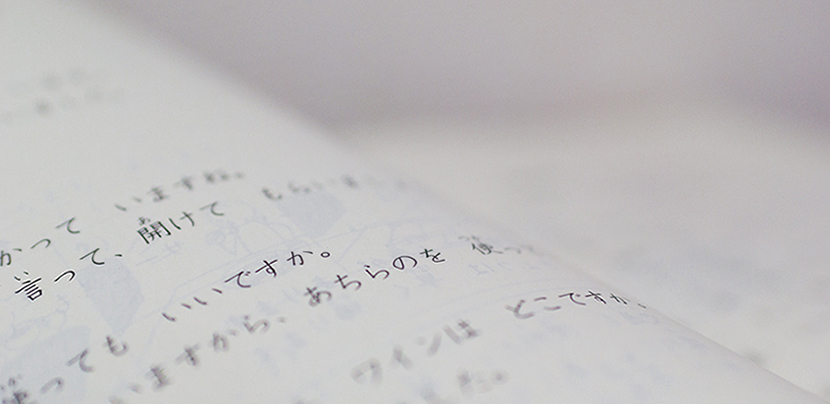 かって いますね。
言って、開けて もらいました
使っても いいですか。
いますから、あちらのを 使っ
ワインは どこですか。
した。